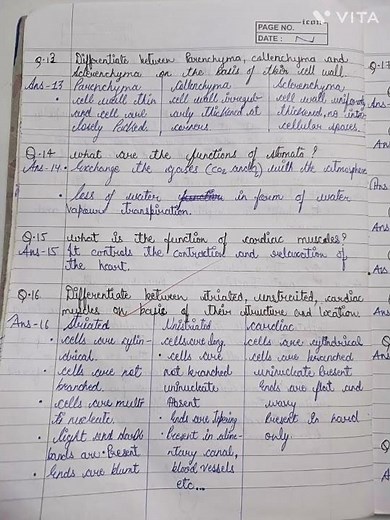 VITA
icon
PAGE NO.
DATE:
Q-13 Differentiate between Parenchyma, collenchyma and
Sclerenchyma on the basis of their cell wall.
Ans-13 Parenchyma Collenchyma Sclerenchyma
• cell wall thin cell wall irregul- cell wall uniformly
and cell are arly thickened at thickened, no inter
closely Packed. corners cellular spaces.
Q-14 what are the functions of stomata?
Ans-14 • Exchange the gases (CO2 and O2) with the atmosphere
• loss of water in form of water
vapour transpiration.
Q-15 what is the function of cardiac muscles?
Ans-15 It controls the contraction and relaxation of
the heart.
Q-16 Differentiate between striated, unstriated, cardiac
muscles on basis of their structure and location
Ans-16 Striated Unstriated cardiac
• cells are cylin- cells are long. cells are cylindrical
drical. • cells are cells are branched
• cells are not not branched uninucleate Present
branched. uninucleate Ends are flat and
• cells are multi Absent wavy
nucleate. • Ends are tapering Present in heart
• light and dark • Present in alime- only.
bands are Present ntary canal,
• Ends are blunt blood vessels
etc...
Q-17
Ans